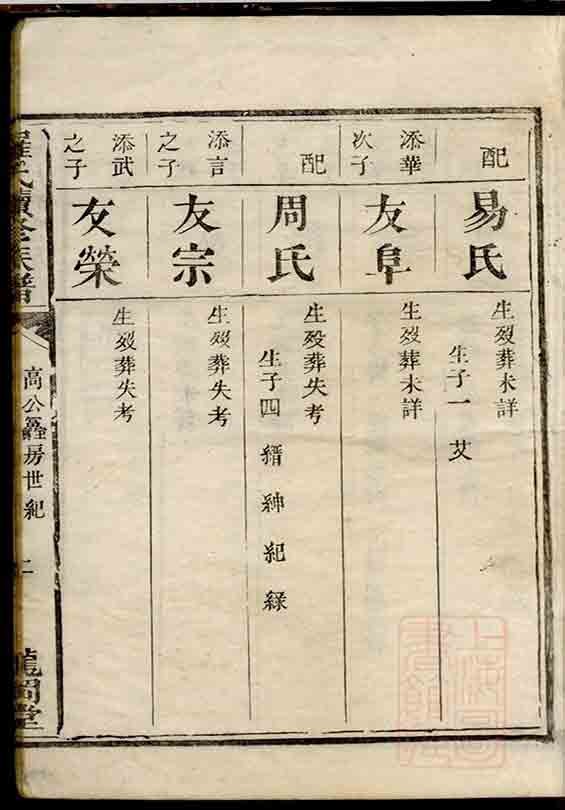 配
易氏
生歿葬未詳
生子一 艾
添華
次子
友阜
生歿葬未詳
配
周氏
生殁葬失考
生子四 縉 紳 紀 緑
添言
之子
友宗
生歿葬失考
添武
之子
友榮
生歿葬失考
羅氏續修族譜
高公
房世紀
二
龍岡堂
上海圖書館藏